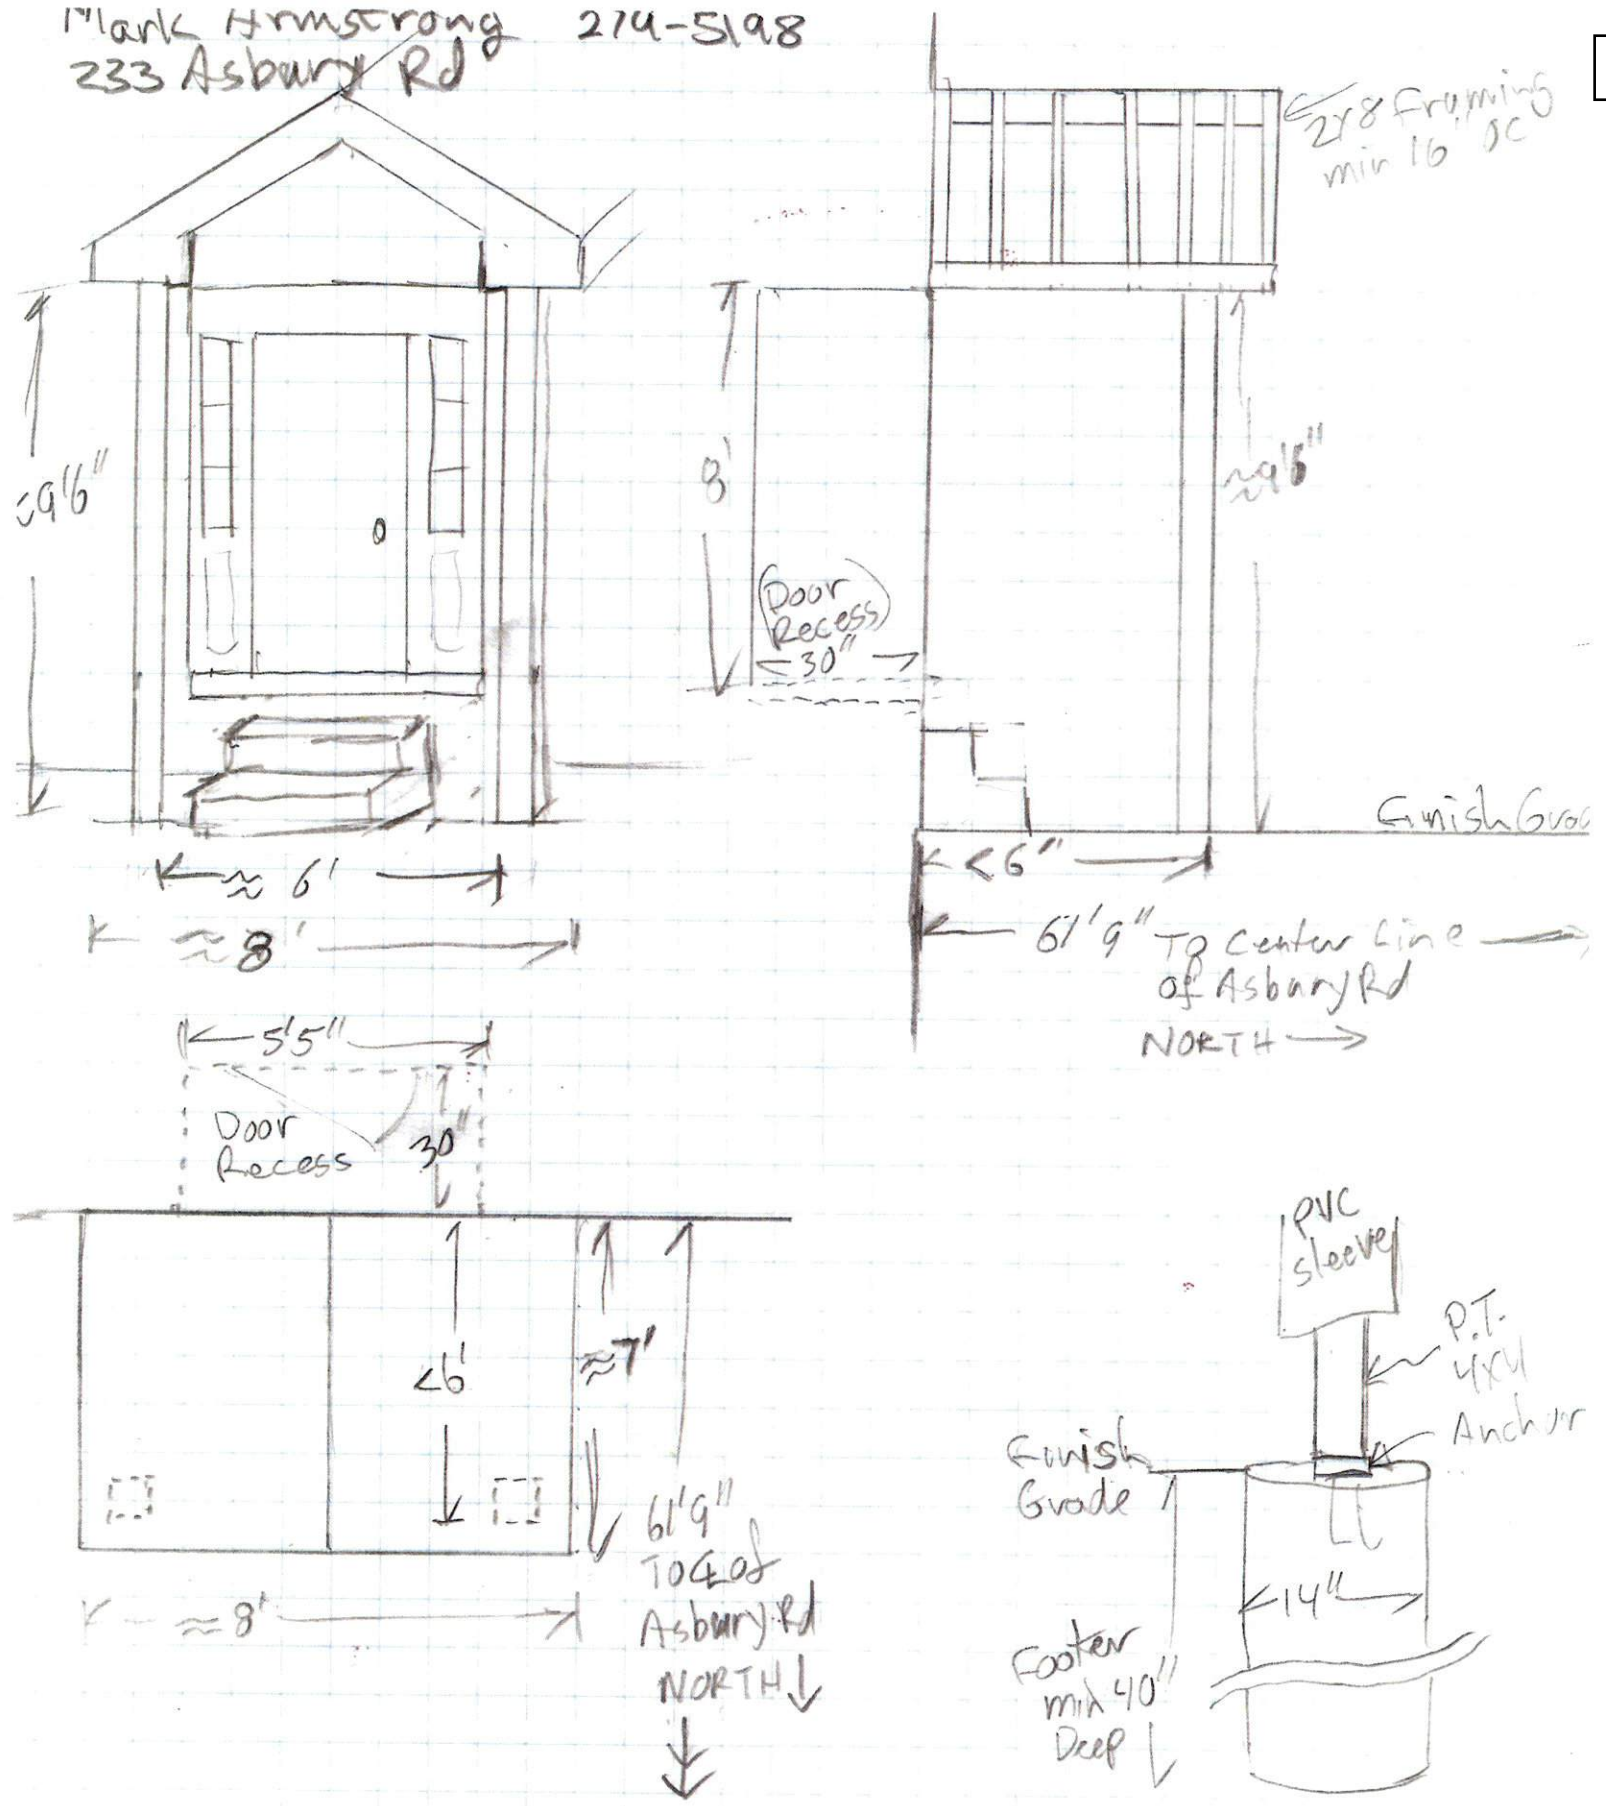 Mark Armstrong 274-5198
233 Asbury Rd
2x8 Framing
min 16" OC
≈9'6"
8'
≈9'6"
(Door
Recess)
30"
Finish Grad
≈ 6'
<6"
≈ 8'
61'9" To Center Line
of Asbury Rd
NORTH →
5'5"
Door
Recess
30"
<6'
≈7'
61'9"
TO ℄ of
Asbury Rd
NORTH ↓
≈8'
PVC
sleeve
P.T.
4x4
Anchor
Finish
Grade
14"
Footer
min 40"
Deep